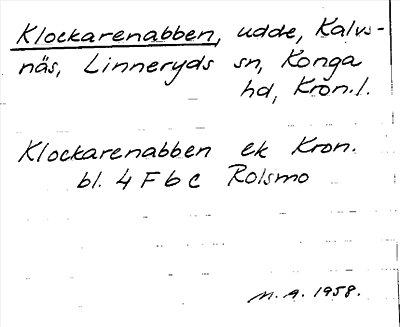 Klockarenabben, udde, Kalvs-
näs, Linneryds sn, Konga
hd, Kron.l.
Klockarenabben ek Kron.
bl. 4 F b c Rolsmo
M.A. 1958.